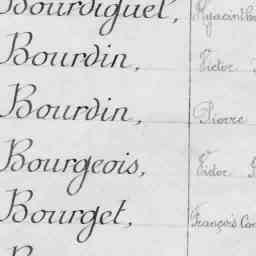 Bourdiguel,
Bourdin, Victor
Bourdin, Pierre
Bourgeois, Victor
Bourget, François